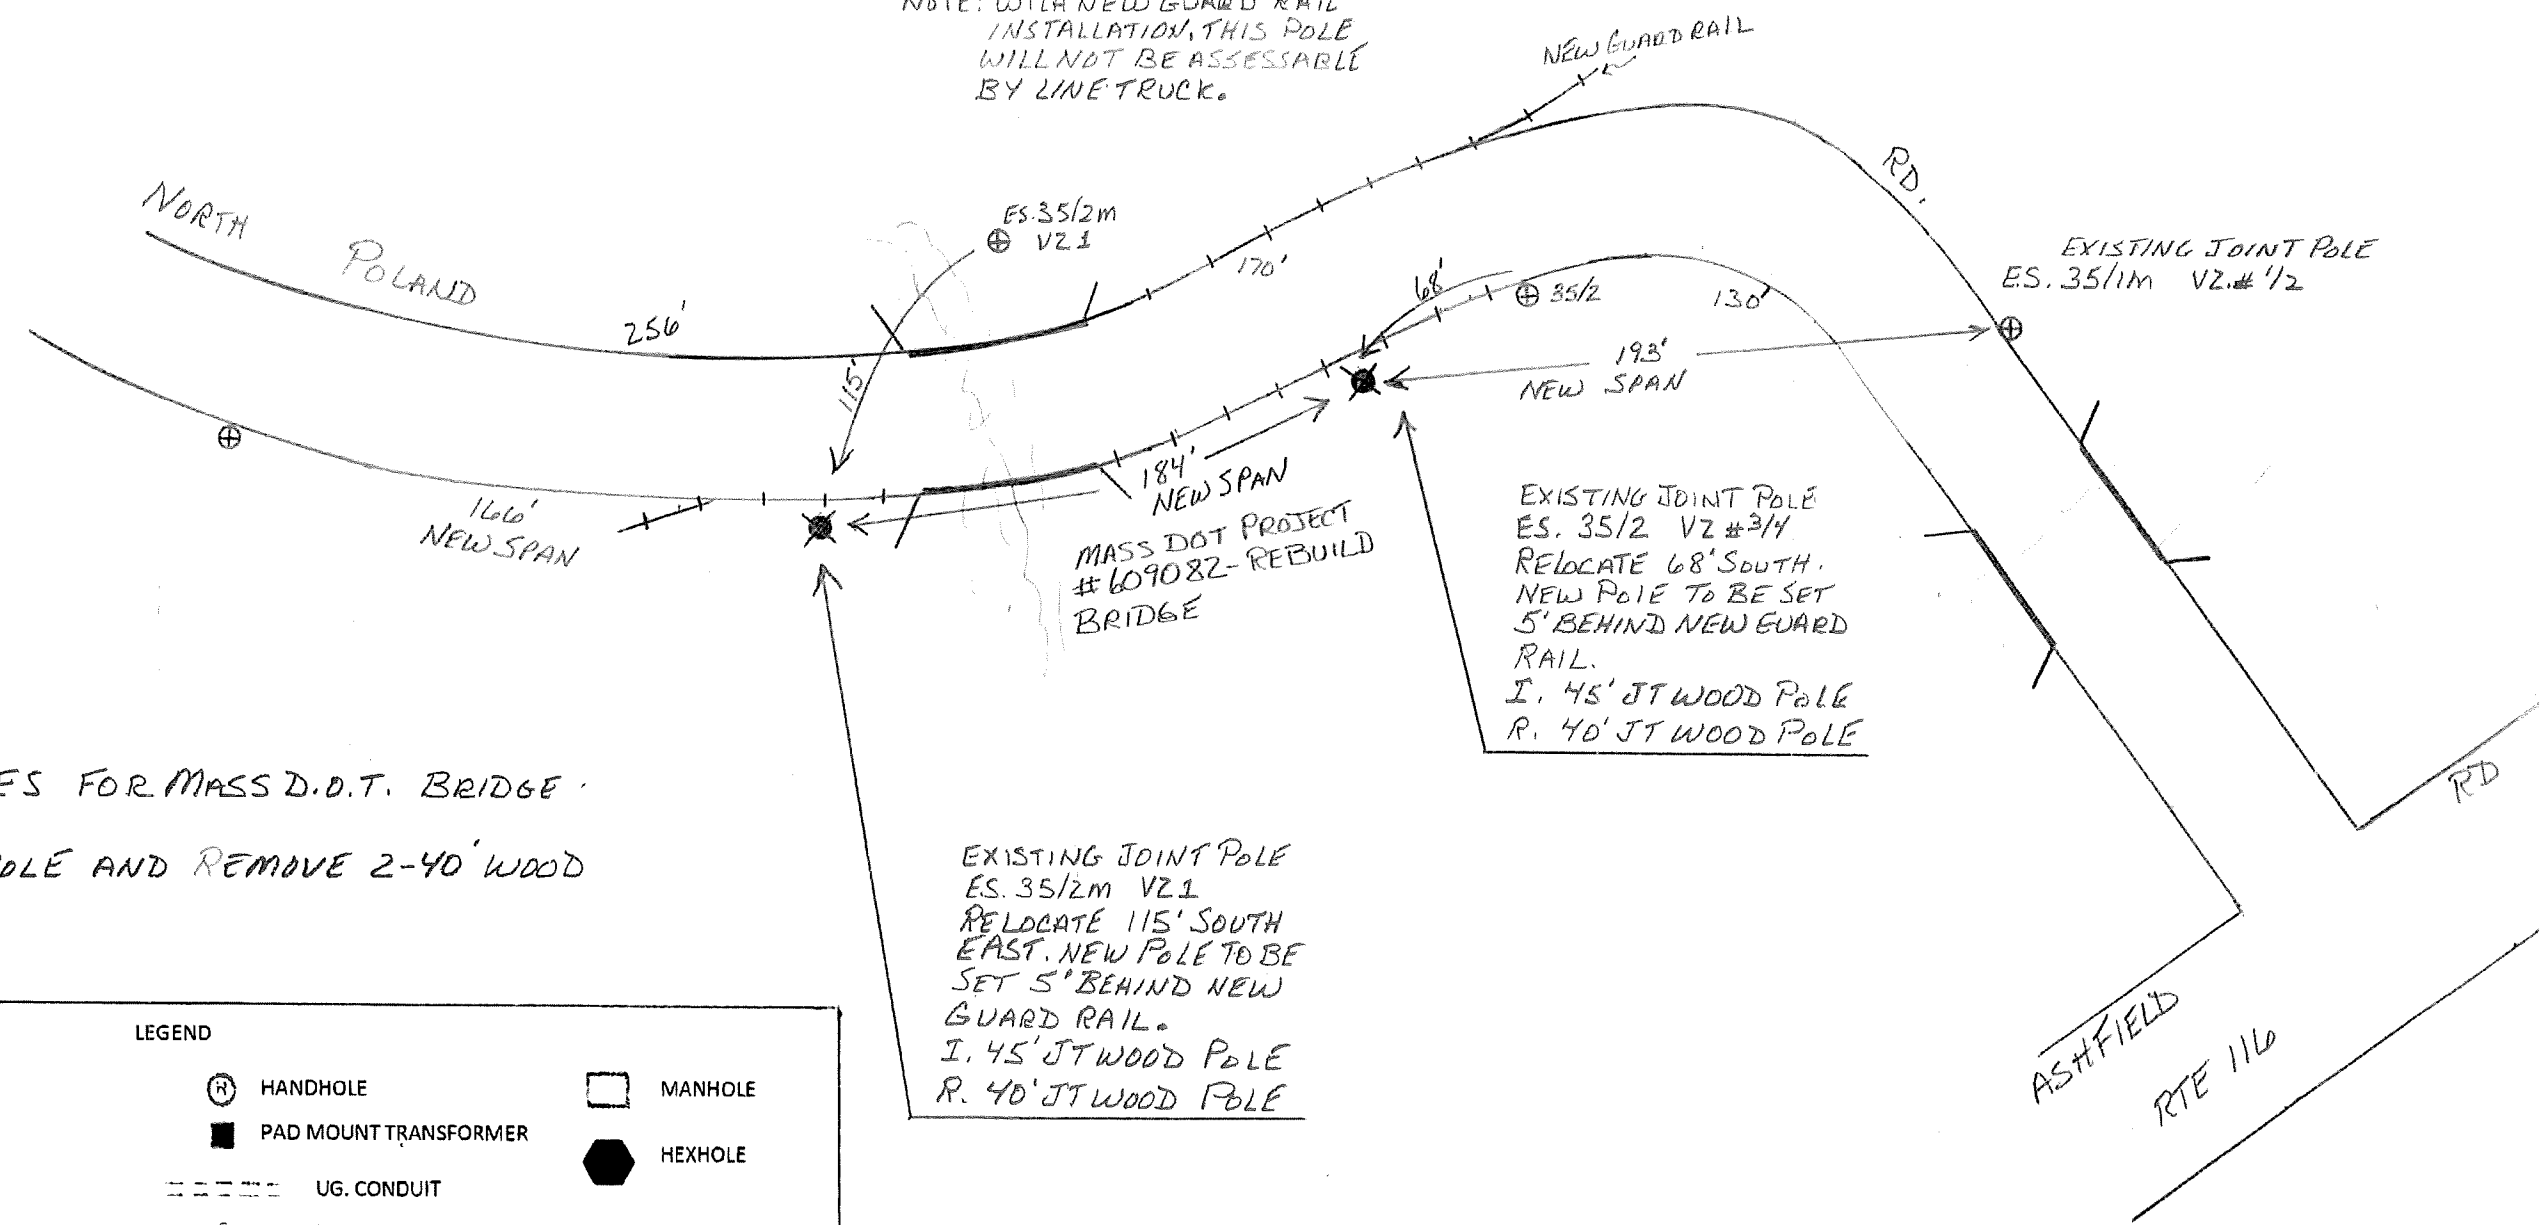 NOTE: WITH NEW GUARD RAIL
INSTALLATION, THIS POLE
WILL NOT BE ASSESSABLE
BY LINE TRUCK.
NEW GUARD RAIL
NORTH POLAND RD.
ES. 35/2M
VZ 1
256'
170'
115'
68'
35/2
130'
EXISTING JOINT POLE
ES. 35/1M VZ.# 1/2
193'
NEW SPAN
166'
NEW SPAN
184'
NEW SPAN
MASS DOT PROJECT
#609082-REBUILD
BRIDGE
EXISTING JOINT POLE
ES. 35/2 VZ #3/4
RELOCATE 68' SOUTH.
NEW POLE TO BE SET
5' BEHIND NEW GUARD
RAIL.
I. 45' JT WOOD POLE
R. 40' JT WOOD POLE
ES FOR MASS D.O.T. BRIDGE
OLE AND REMOVE 2-40' WOOD
EXISTING JOINT POLE
ES. 35/2M VZ 1
RELOCATE 115' SOUTH
EAST. NEW POLE TO BE
SET 5' BEHIND NEW
GUARD RAIL.
I. 45' JT WOOD POLE
R. 40' JT WOOD POLE
ASHFIELD RD
RTE 116
LEGEND
H HANDHOLE
MANHOLE
PAD MOUNT TRANSFORMER
HEXHOLE
UG. CONDUIT